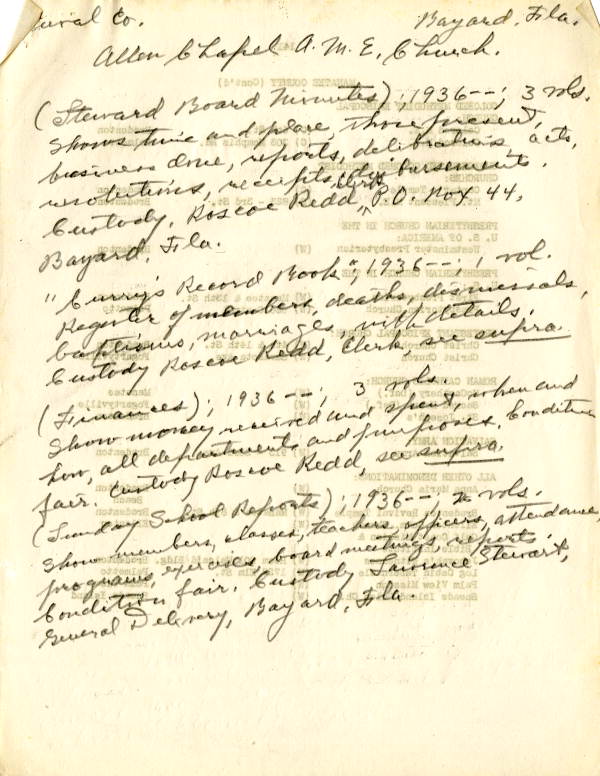 Duval Co.
Bayard, Fla.
Allen Chapel A. M. E. Church.
(Steward Board Minutes); 1936--; 3 vols.
Shows time and place, those present,
business done, reports, deliberations, acts,
resolutions, receipts, disbursements.
Custody, Roscoe Redd, Clerk, P.O. Box 44,
Bayard, Fla.
"Curry's Record Book"; 1936--; 1 vol.
Register of members, deaths, dismissals,
baptisms, marriages, with details.
Custody Roscoe Redd, Clerk, see supra.
(Finances); 1936--; 3 vols.
Show money received and spent, when and
how, all departments and purposes. Condition
fair. Custody Roscoe Redd, see supra.
(Sunday School Reports); 1936--; vols.
Show members, classes, teachers, officers, attendance,
programs, exercises, board meetings, reports.
Condition fair. Custody Lawrence Stewart,
General Delivery, Bayard, Fla.